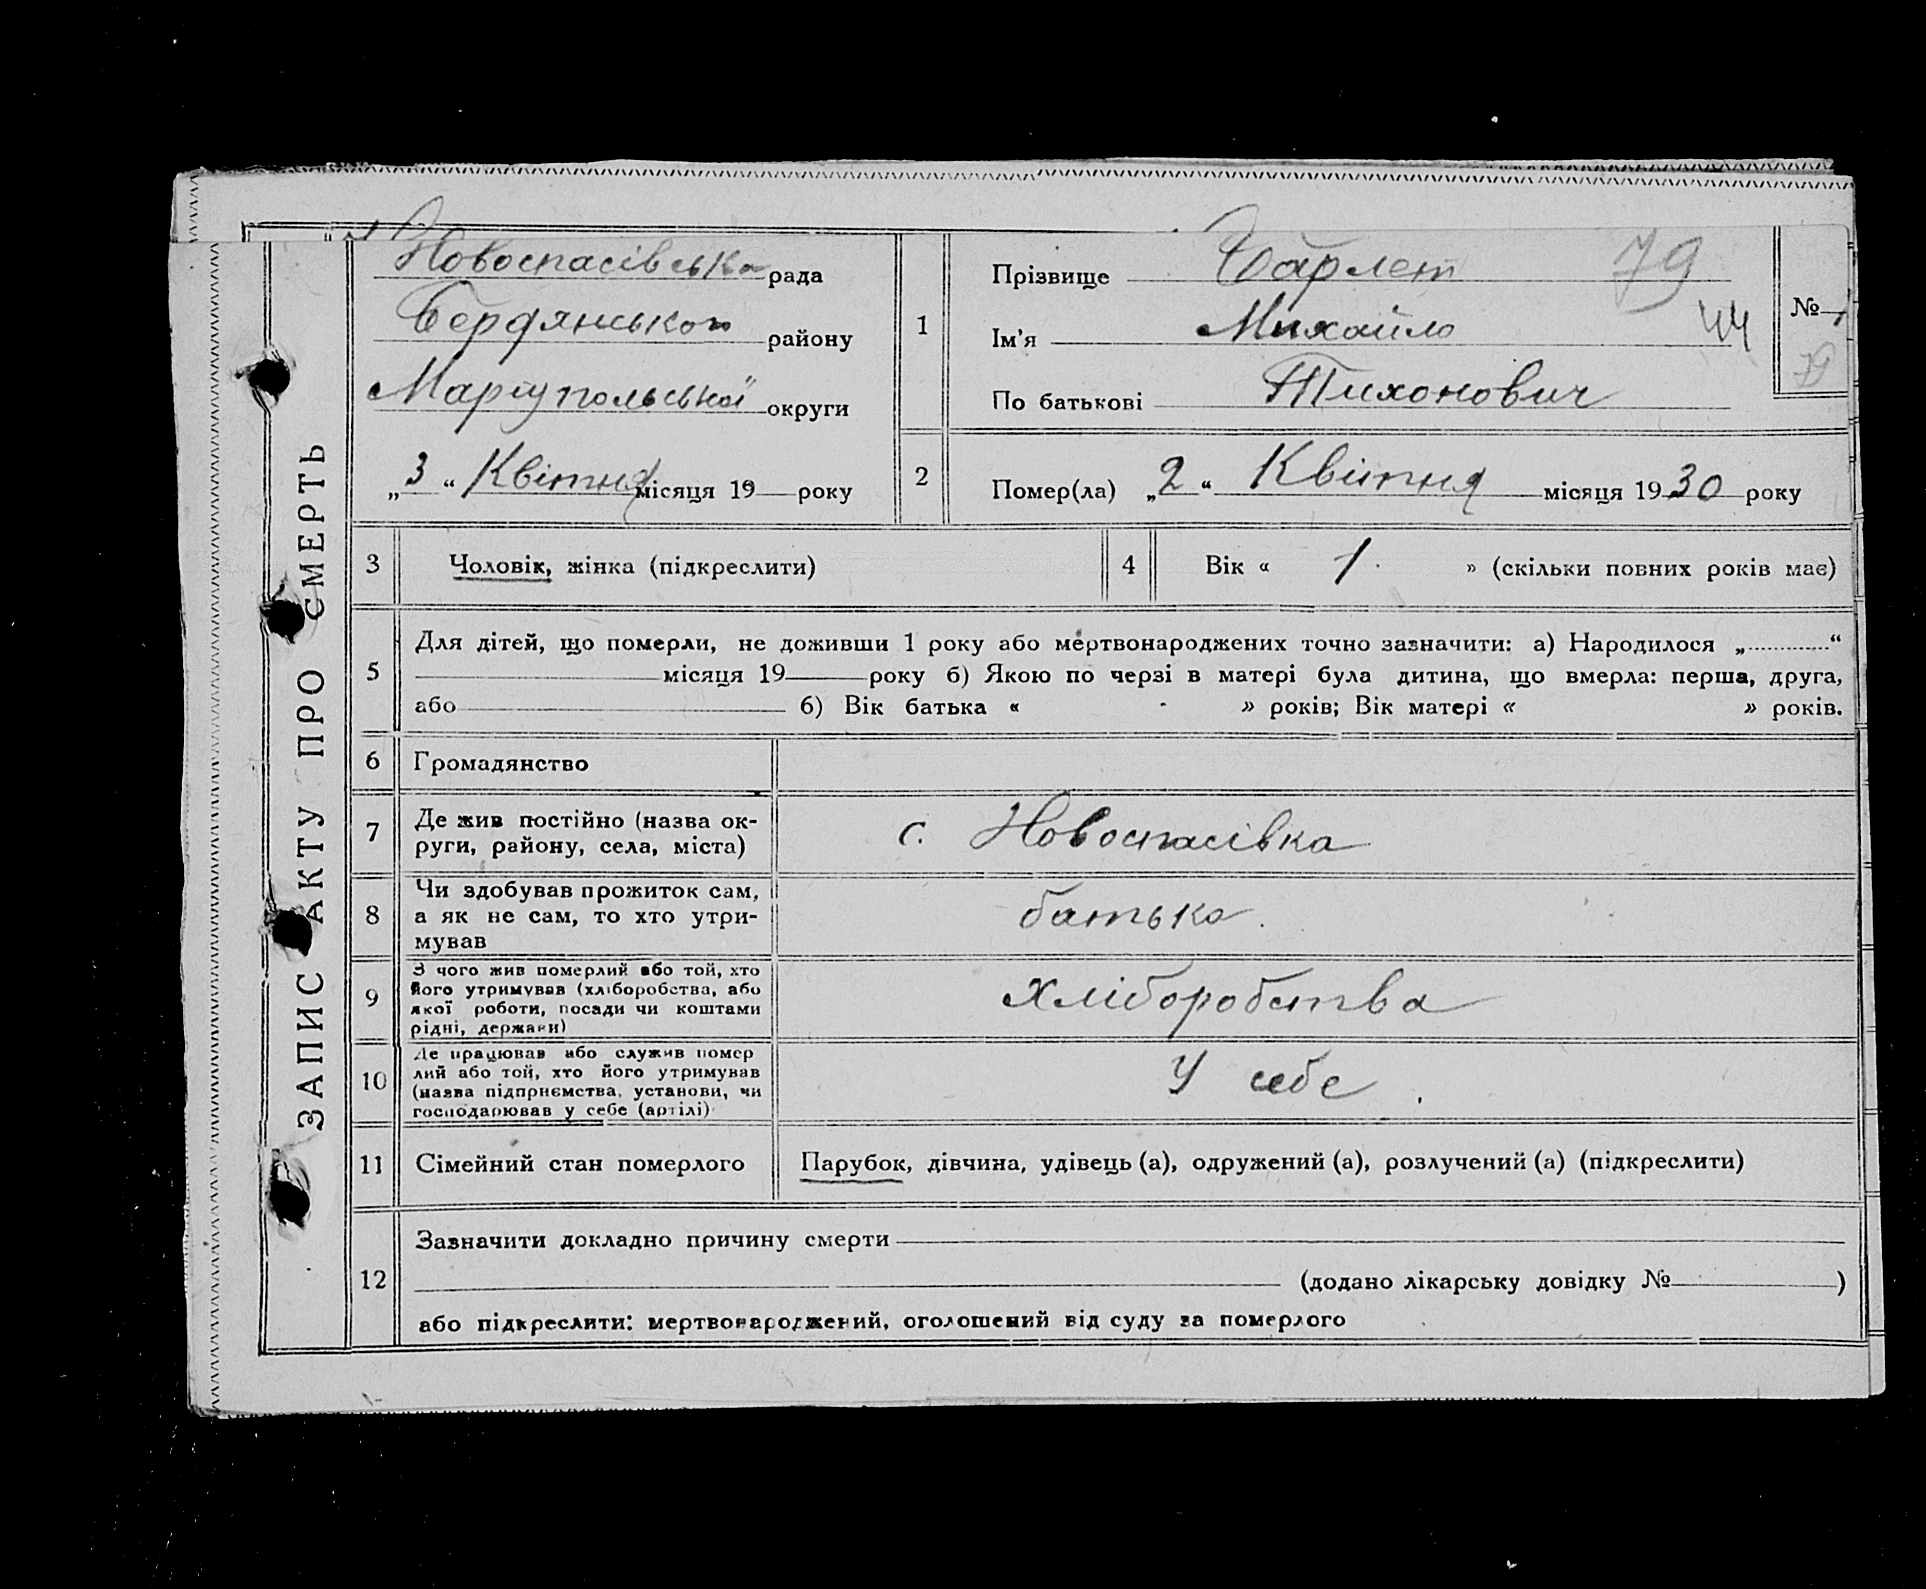 ЗАПИС АКТУ ПРО СМЕРТЬ
Новоспасівська рада
Бердянського району
Маріупольської округи
„3“ Квітня місяця 19 року
1
Прізвище Барлет 79
Ім'я Михайло 44
По батькові Тихонович
№
2
Помер(ла) „2“ Квітня місяця 1930 року
3 Чоловік, жінка (підкреслити)
4 Вік « 1. » (скільки повних років має)
5
Для дітей, що померли, не доживши 1 року або мертвонароджених точно зазначити: а) Народилося „ “
місяця 19 року б) Якою по черзі в матері була дитина, що вмерла: перша, друга,
або б) Вік батька « » років; Вік матері « » років.
6 Громадянство
7
Де жив постійно (назва ок-
руги, району, села, міста)
с. Новоспасівка
8
Чи здобував прожиток сам,
а як не сам, то хто утри-
мував
батько.
9
З чого жив померлий або той, хто
його утримував (хліборобства, або
якої роботи, посади чи коштами
рідні, держави)
Хліборобства
10
Де працював або служив помер
лий або той, хто його утримував
(назва підприємства, установи, чи
господарював у себе (артілі)
У себе.
11 Сімейний стан померлого
Парубок, дівчина, удівець (а), одружений (а), розлучений (а) (підкреслити)
12
Зазначити докладно причину смерти
(додано лікарську довідку № )
або підкреслити: мертвонароджений, оголошений від суду за померлого